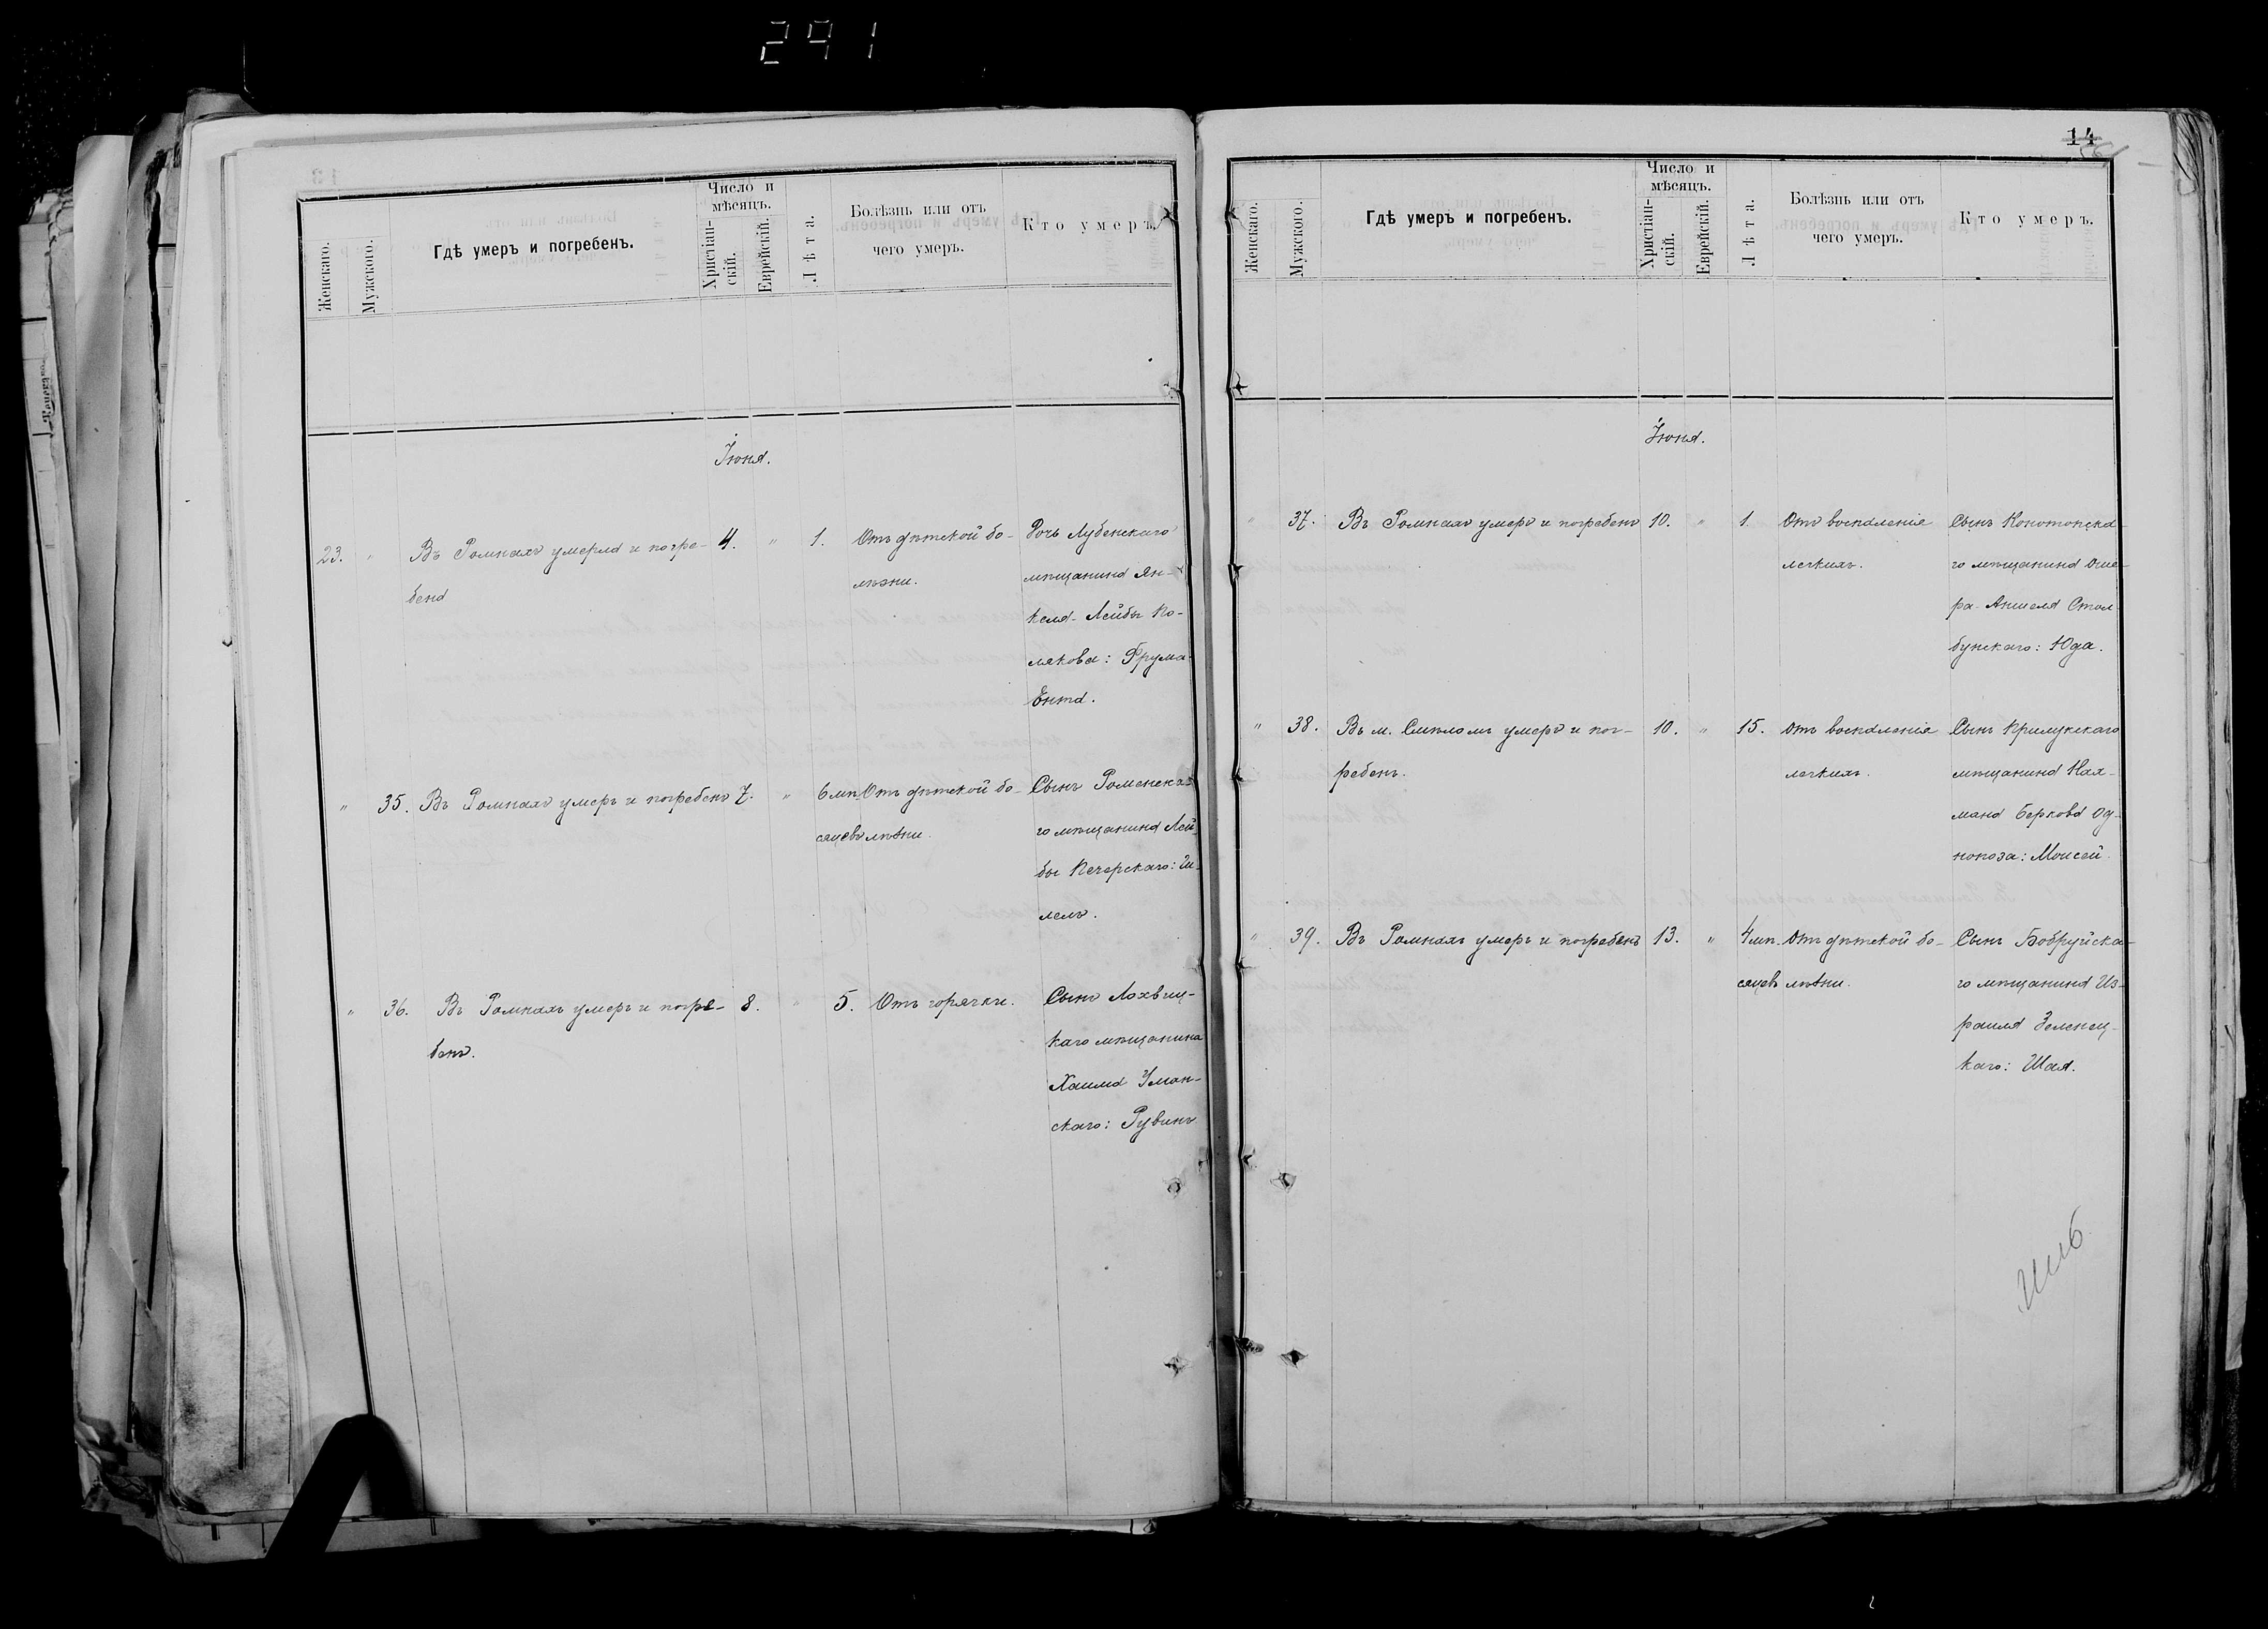 291
Женскаго.
Мужского.
Гдѣ умеръ и погребенъ.
Число и мѣсяцъ.
Христіан-
скій.
Еврейскій.
Лѣта.
Болѣзнь или отъ
чего умеръ.
Кто умеръ.
Іюня.
23. " Въ Ромнахъ умерла и погре- 4. " 1. Отъ дѣтской бо- Дочь Лубенскаго
бена лѣзни. мѣщанина Ян-
келя-Лейбы Ко-
лякова: Фрума
Ента.
" 35. Въ Ромнахъ умеръ и погребенъ 7. " 6 мѣ. Отъ дѣтской бо- Сынъ Роменска-
сяцевъ лѣзни. го мѣщанина Лей-
бы Печерскаго: Ги-
лель.
" 36. Въ Ромнахъ умеръ и погре- 8. " 5. Отъ горячки. Сынъ Лохвиц-
бенъ. каго мѣщанина
Хаима Уман-
скаго: Рувинъ
14
Женскаго.
Мужского.
Гдѣ умеръ и погребенъ.
Число и
мѣсяцъ.
Христіан-
скій.
Еврейскій.
Лѣта.
Болѣзнь или отъ
чего умеръ.
Кто умеръ.
Іюня.
" 37. Въ Ромнахъ умеръ и погребенъ 10. " 1. Отъ воспаленія Сынъ Конотопска-
легкихъ. го мѣщанина Оше-
ра-Аншеля Стол-
бунскаго: Юда.
" 38. Въ м. Смѣломъ умеръ и пог- 10. " 15. Отъ воспаленія Сынъ Прилукскаго
ребенъ. легкихъ. мѣщанина Нах-
мана Беркова Од-
нопоза: Моисей.
" 39. Въ Ромнахъ умеръ и погребенъ 13. " 4 мѣ. Отъ дѣтской бо- Сынъ Бобруйска-
сяцевъ лѣзни. го мѣщанина Из-
раиля Зеленец-
каго: Шая.